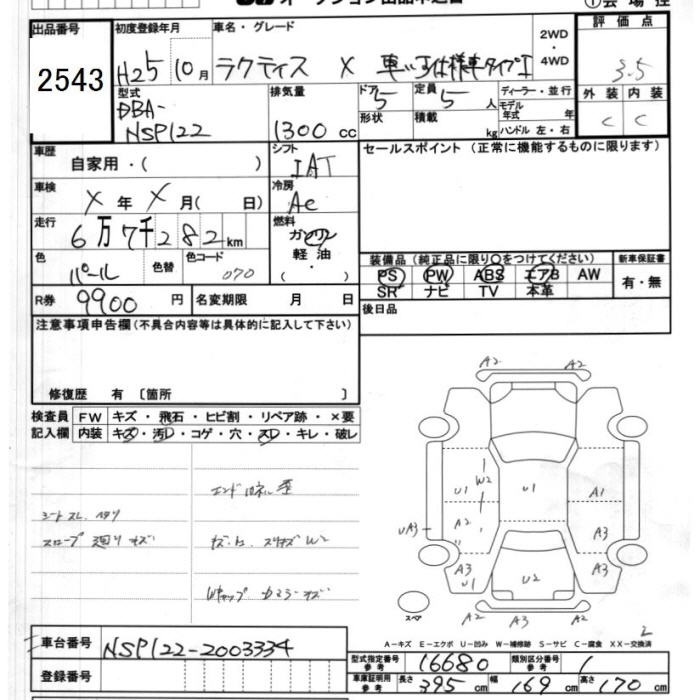 出品番号
2543
初度登録年月
H25 10月
車名・グレード
ラクティス X 車いす仕様車タイプI
2WD
・
4WD
評価点
3.5
型式
DBA-
NSP122
排気量
1300 cc
ドア 5
定員 5 人
ディーラー・並行
モデル年式 年
外装 内装
C C
形状
積載 kg
ハンドル 左・右
車歴
自家用・( )
シフト
IAT
セールスポイント (正常に機能するものに限ります)
車検
X 年 X 月( 日)
冷房
AC
走行
6万7千282km
燃料
ガソリン
軽油
( ・ )
色
パール
色替
色コード
070
装備品 (純正品に限り○をつけてください)
新車保証書
PS PW ABS エアB AW
有・無
SR ナビ TV 本革
R券 9900 円
名変期限 月 日
後日品
注意事項申告欄(不具合内容等は具体的に記入して下さい)
修復歴 有 〔箇所 〕
検査員 FW キズ・飛石・ヒビ割・リペア跡・×要
記入欄 内装 キズ・汚レ・コゲ・穴・スレ・キレ・破レ
シートスレ ヘタリ
スロープ廻りキズ
A2 A2
U1 W2 U1 A1
UA3 A2 A3
A3 U1 U2 A3
A2 A3 A2
スペア
A-キズ E-エクボ U-凹み W-補修跡 S-サビ C-腐食 XX-交換済
車台番号 NSP122-2003334
登録番号
型式指定番号 参考 16680
類別区分番号 参考 1
車庫証明用 参考 長さ 395 cm 幅 169 cm 高さ 170 cm